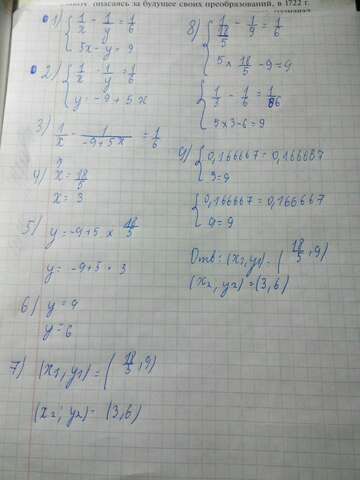 опасаясь за будущее своих преобразований, в 1722 г.
1) { 1/x - 1/y = 1/6
5x - y = 9
2) { 1/x - 1/y = 1/6
y = -9 + 5x
3) 1/x - 1/(-9+5x) = 1/6
4) x = 18/5
x = 3
5) y = -9 + 5 × 18/5
y = -9 + 5 × 3
6) y = 9
y = 6
7) (x1, y1) = (18/5, 9)
(x2; y2) = (3, 6)
8) { 1/(18/5) - 1/9 = 1/6
5 × 18/5 - 9 = 9
{ 1/3 - 1/6 = 1/6
5 × 3 - 6 = 9
9) { 0,166667 = 0,166667
9 = 9
{ 0,166667 = 0,166667
9 = 9
Отв: (x1, y1) = (18/5, 9)
(x2, y2) = (3, 6)